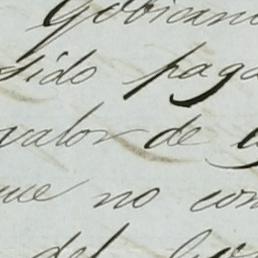 Gobierno
sido paga
valor de
que no con
del Go